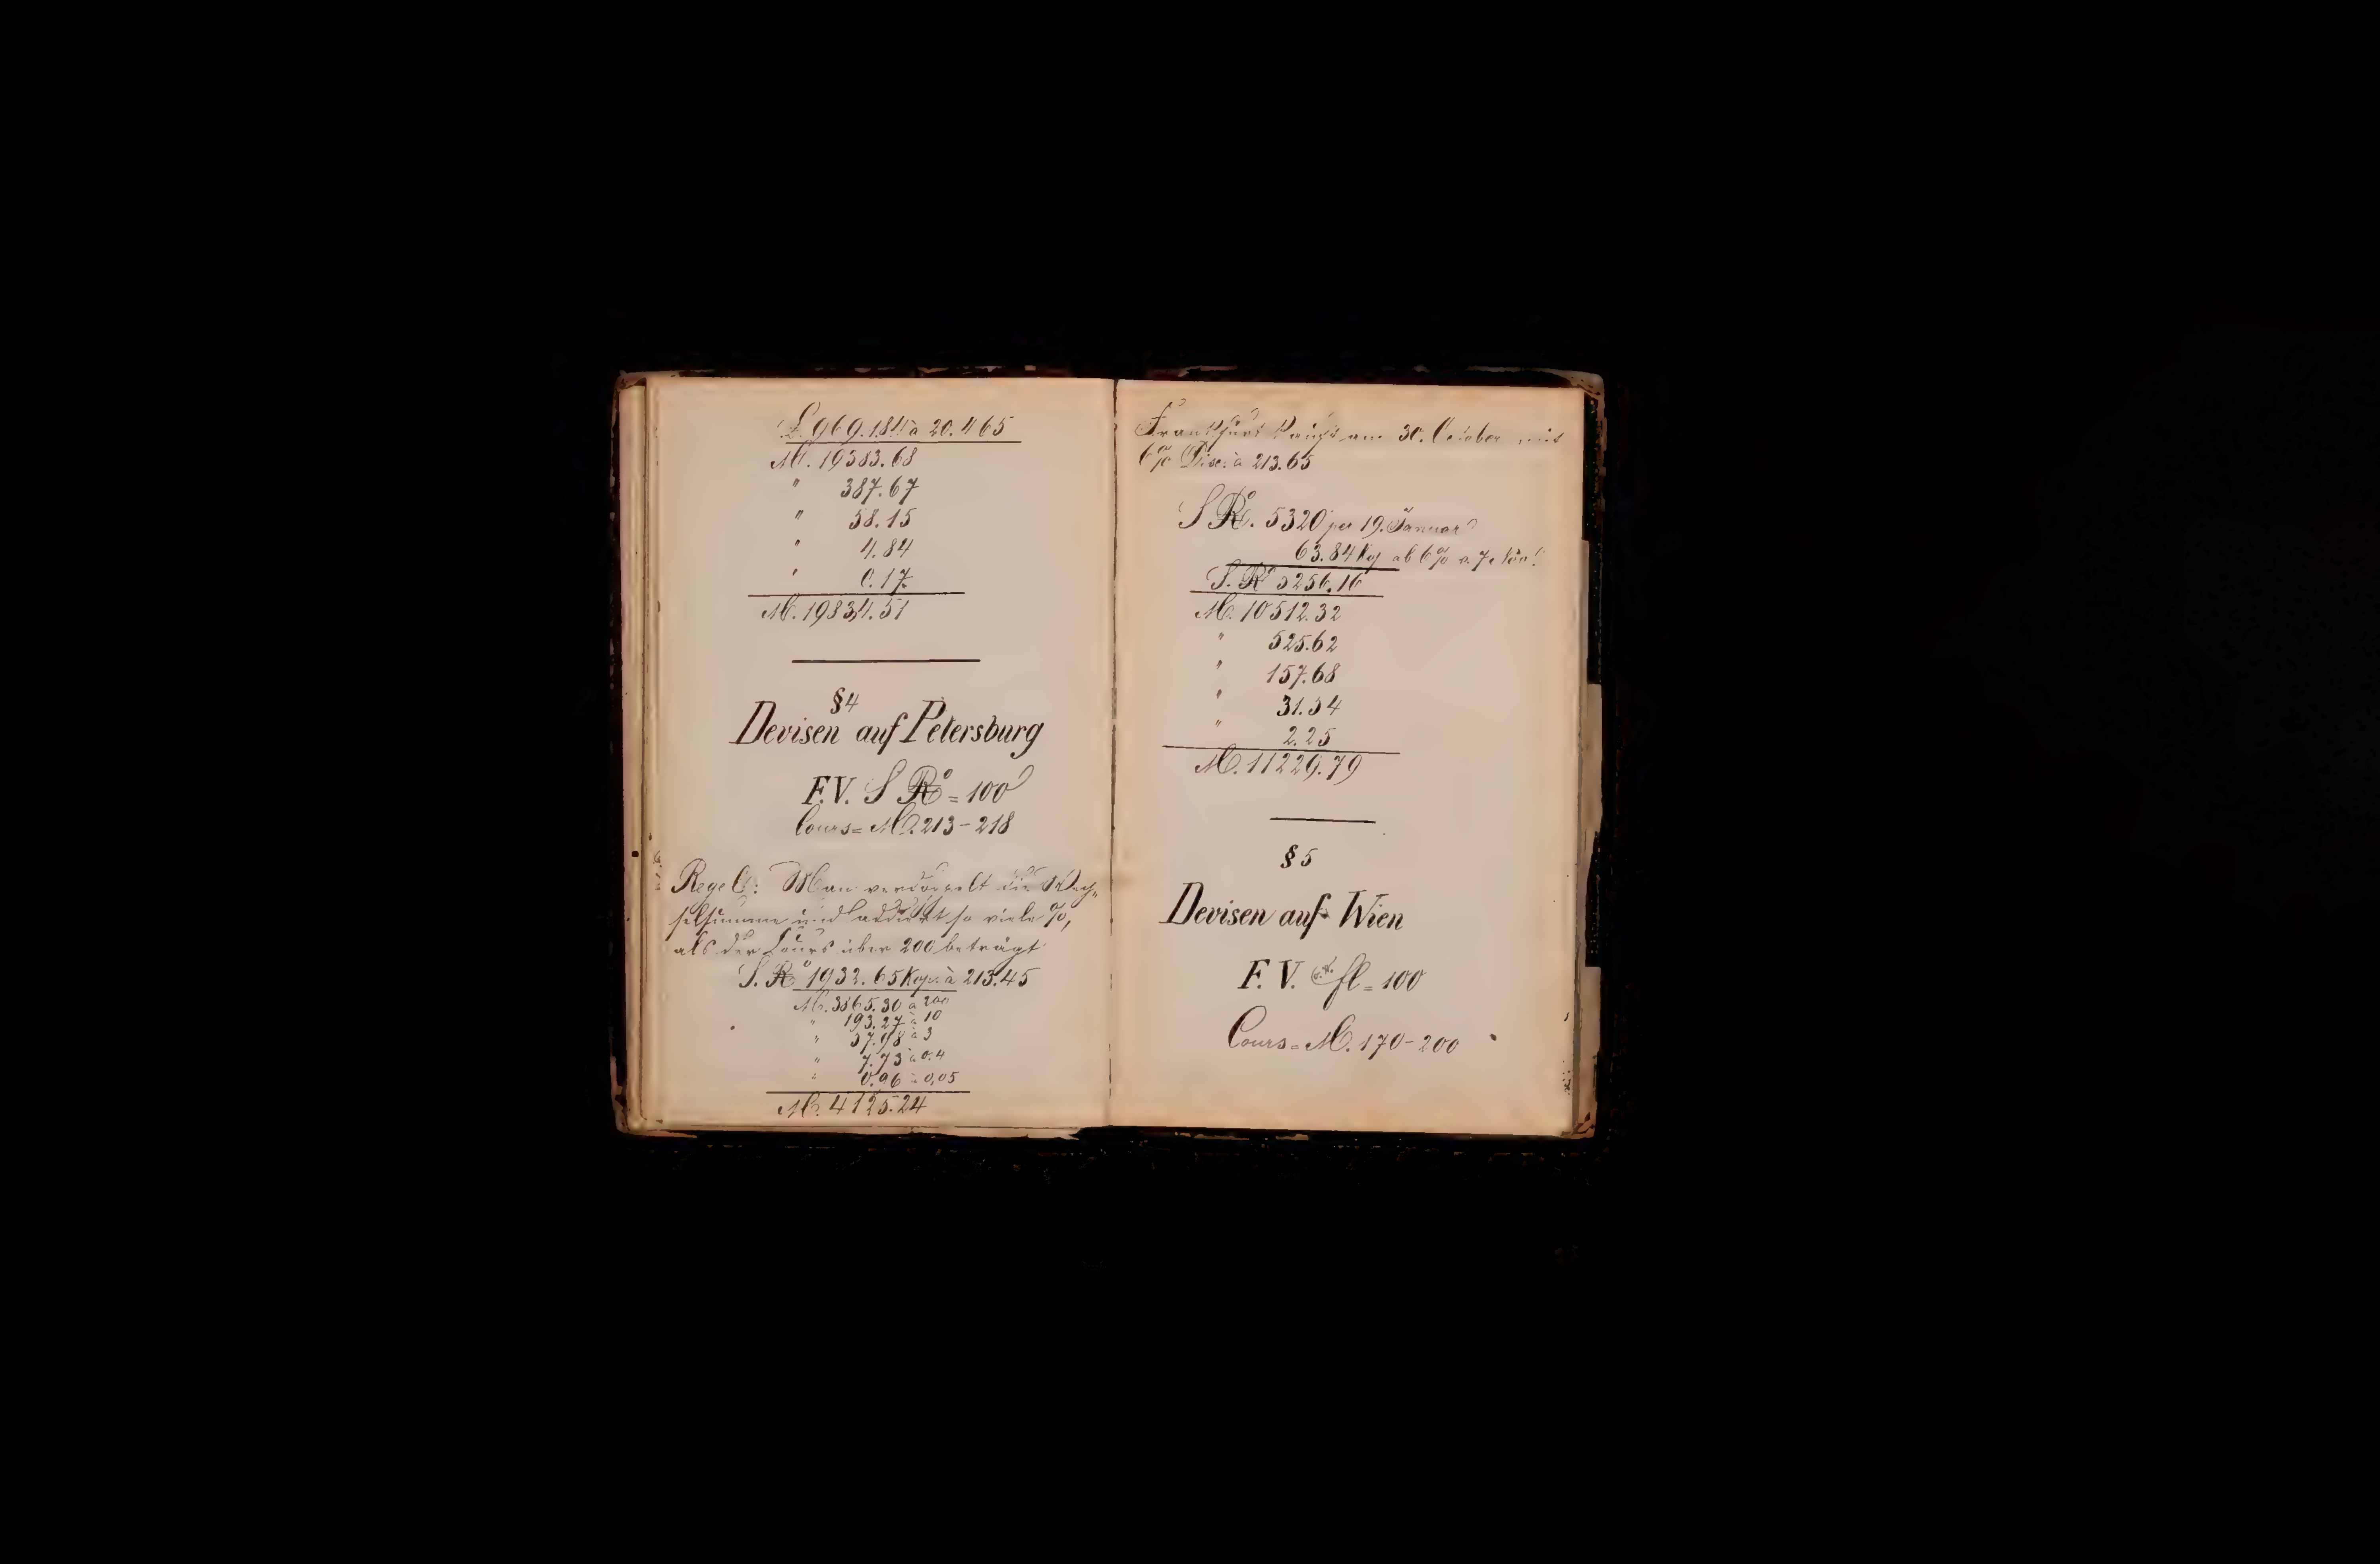 £. 969. 18.4 à 20.465
M. 19383.68
" 387.67
" 58.15
" 4.84
" 0.17
M. 19834.51
§4
Devisen auf Petersburg
F.V. S Ro = 100
Cours = M. 213 - 218
Regel: Man verdoppelt die Wech-
selsumme und addiert so viele %,
als der Cours über 200 beträgt
S. Ro 1932.65 Kop. à 213.45
M. 3865.30 à 200
" 193.27 à 10
" 57.98 à 3
" 7.73 à 0.4
" 0.96 à 0,05
M. 4125.24
Frankfurt kauft am 30. October mit
6% Disc. à 213.65
S Ro. 5320 per 19. Januar
63.84 Kop ab 6%
S. Ro 5256.16
M. 10512.32
" 525.62
" 157.68
" 31.54
" 2.25
M. 11229.79
§5
Devisen auf Wien
F.V. fl = 100
Cours = M. 170 - 200